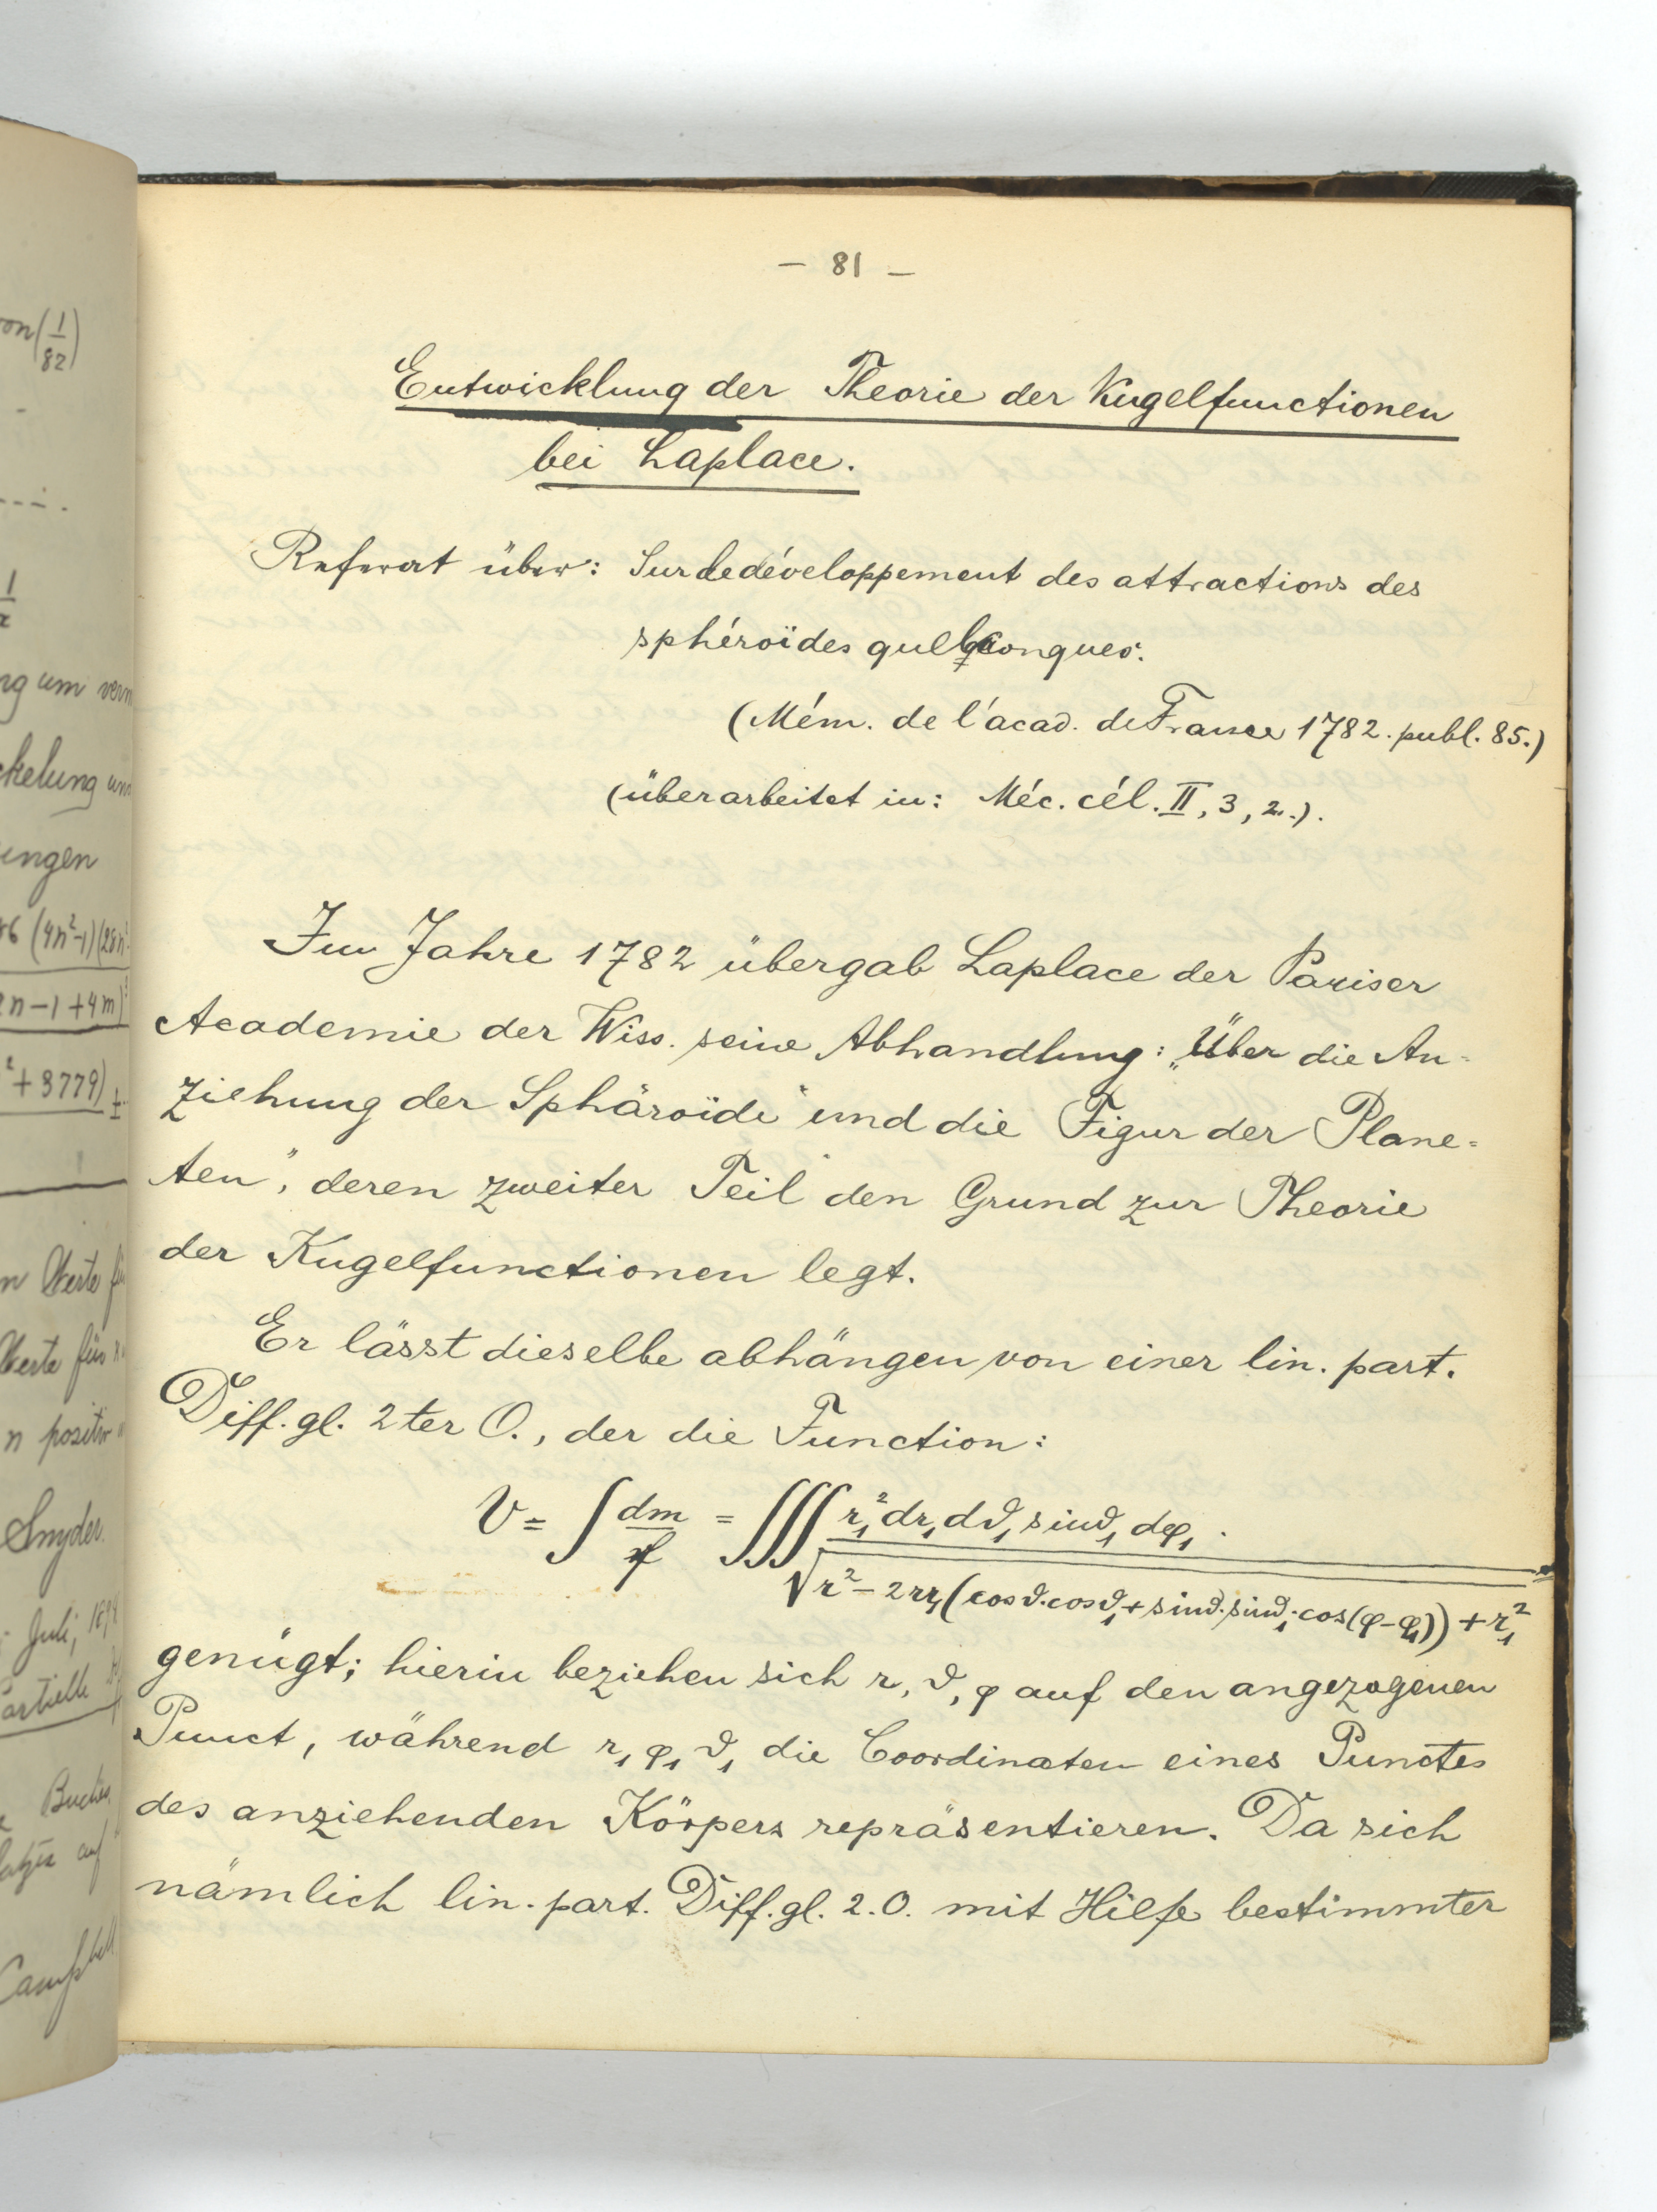 von (1/82)
ng um verm
ckelung und
ungen
(4n²-1)(28n²
2n-1+4m)
²+3779) ±
n Werte für
Werte für
n positiv
Snyder.
Juli, 189
artielle
Buches
auf
Campbell
- 81 -
Entwicklung der Theorie der Kugelfunctionen
bei Laplace.
Referat über: Sur le développement des attractions des
sphéroïdes quelconques.
(Mém. de l'acad. de France 1782. publ. 85.)
(überarbeitet in: Méc. cél. II, 3, 2.).
Im Jahre 1782 übergab Laplace der Pariser
Academie der Wiss. seine Abhandlung: „Über die An=
ziehung der Sphäroïde und die Figur der Plane=
ten", deren zweiter Teil den Grund zur Theorie
der Kugelfunctionen legt.
Er lässt dieselbe abhängen von einer lin. part.
Diff. gl. 2ter O., der die Function:
V = ∫ dm/f = ∫∫∫ r₁² dr₁ dϑ₁ sinϑ₁ dφ₁ .
√r² - 2rr₁(cosϑ·cosϑ₁ + sinϑ·sinϑ₁·cos(φ-φ₁)) + r₁²
genügt; hierin beziehen sich r, ϑ, φ auf den angezogenen
Punct, während r₁ φ₁ ϑ₁ die Coordinaten eines Punctes
des anziehenden Körpers repräsentieren. Da sich
nämlich lin. part. Diff. gl. 2. O. mit Hilfe bestimmter